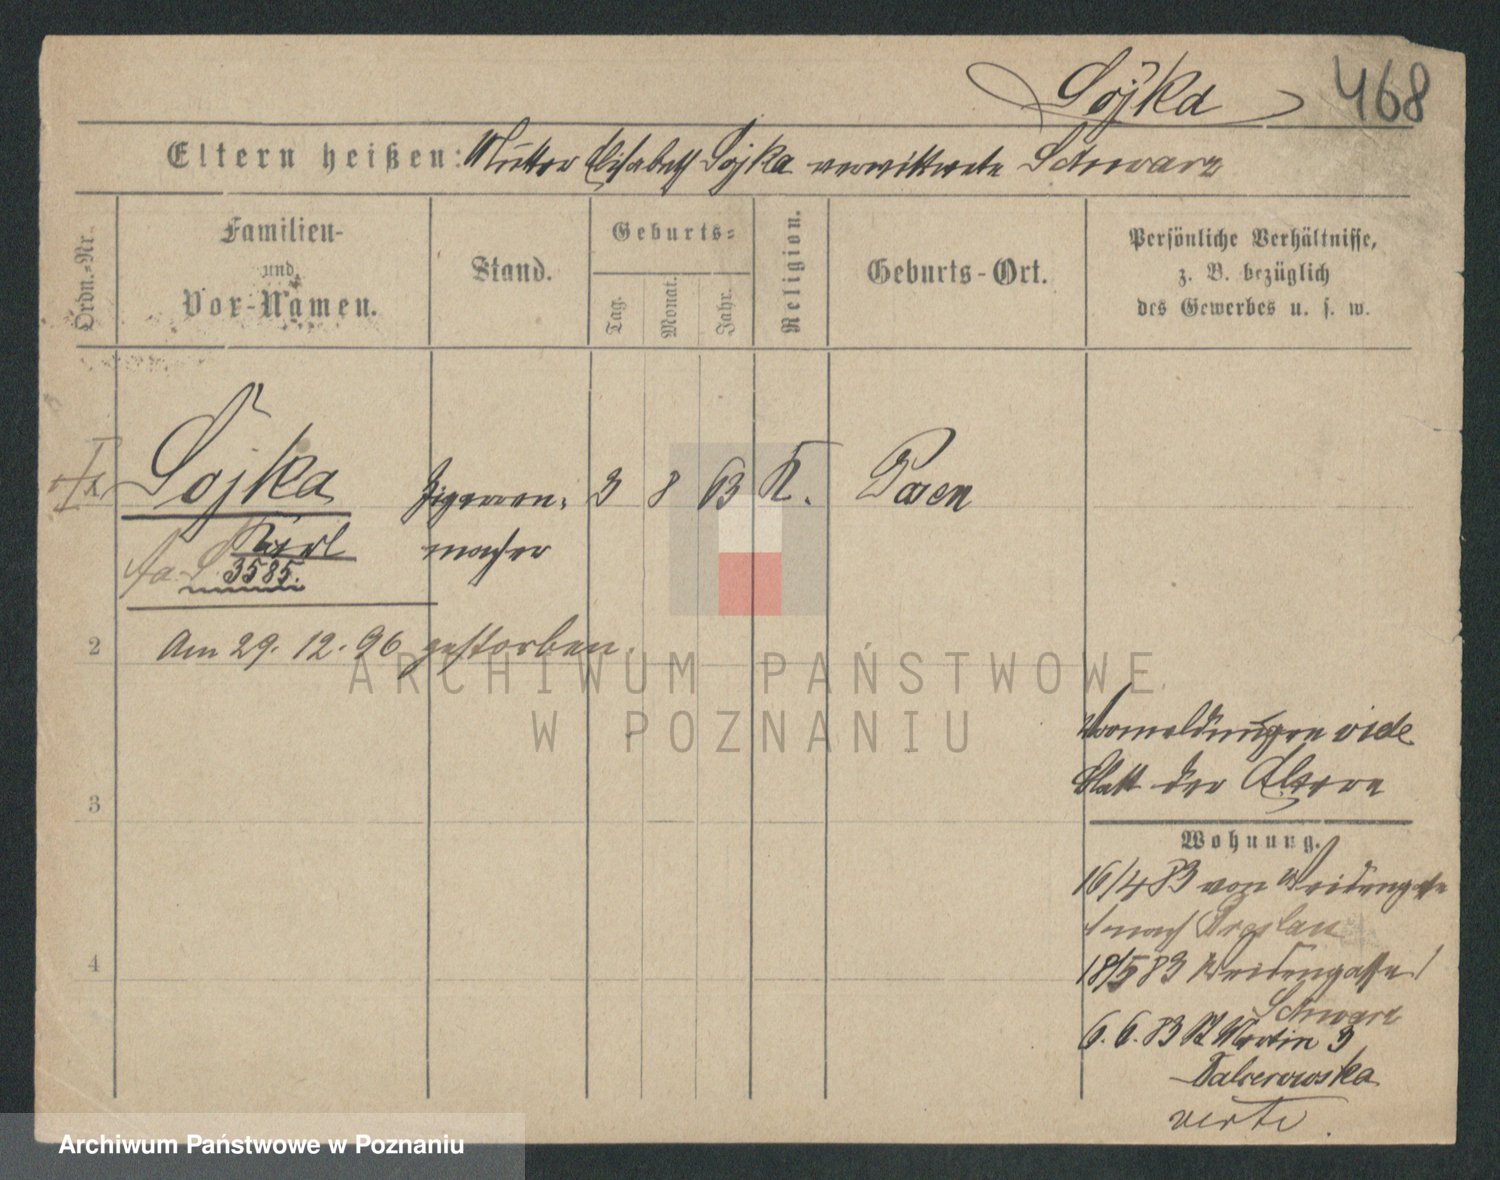 Sojka 468
Eltern heißen: Mutter Elisabeth Sojka verwittwete Schwarz
Ordn.-Nr.
Familien-
und
Vor-Namen.
Stand.
Geburts-
Tag.
Monat.
Jahr.
Religion.
Geburts-Ort.
Persönliche Verhältnisse,
z. B. bezüglich
des Gewerbes u. s. w.
Sojka Zigarren- 3 8 63 K. Posen
Karl macher
3585.
2
Am 29. 12. 96 gestorben.
ARCHIWUM PAŃSTWOWE
W POZNANIU
Vormeldungen vide
3
Blatt der Eltern
Wohnung.
16/4 83 von Weidengasse
nach Breslau
4
18/5 83 Weidengasse
Schwarz
6. 6. 83 St Martin 3
verte.
Archiwum Państwowe w Poznaniu